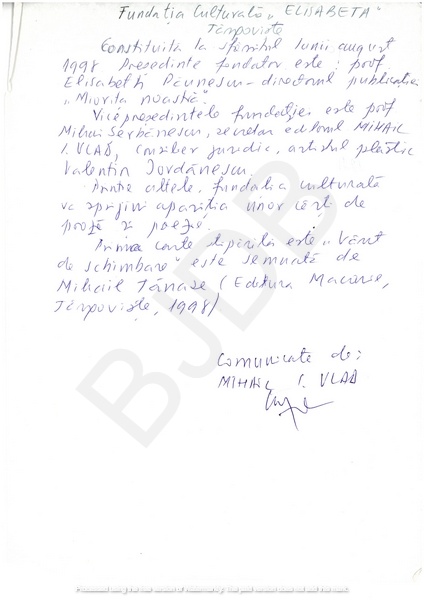 Fundatia Culturală „ELISABETA"
Târgoviște
Constituită la sfârșitul lunii august
1998 Președinte fondator este: prof
Elisabeth Păunescu - directorul publicației
„Miorița noastră".
Vicepreședintele fundației este prof
Mihai Serbănescu, secretar editorul MIHAIL
I. VLAD, consilier juridic, artistul plastic
Valentin Iordănescu.
Printre altele, fundatia culturală
va sprijini apariția unor cărți de
proză și poezie.
Prima carte tipărită este „Vânt
de schimbare" este semnată de
Mihail Tănase (Editura Macarie,
Târgoviște, 1998)
Comunicate de:
MIHAIL I. VLAD
BJDB